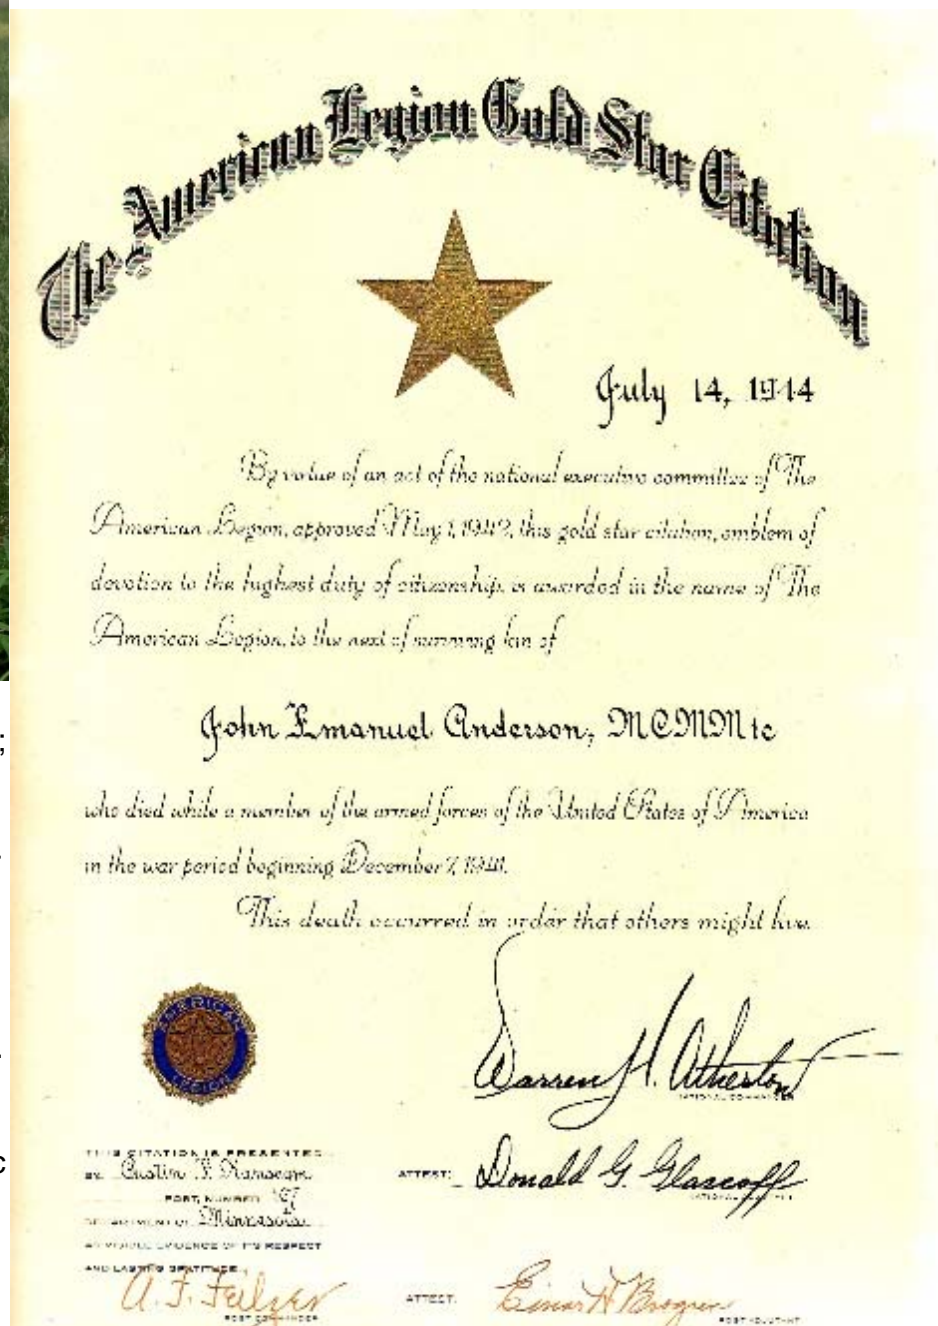 The American Legion Gold Star Citation
July 14, 1944
By virtue of an act of the national executive committee of The
American Legion, approved May 1, 1942, this gold star citation, emblem of
devotion to the highest duty of citizenship, is awarded in the name of The
American Legion, to the next of surviving kin of
John Emanuel Anderson, MCMM1c
who died while a member of the armed forces of the United States of America
in the war period beginning December 7, 1941.
This death occurred in order that others might live.
AMERICAN
LEGION
Warren H. Atherton
NATIONAL COMMANDER
THIS CITATION IS PRESENTED
BY
POST, NUMBER
DEPARTMENT OF Minnesota
AS VISIBLE EVIDENCE OF ITS RESPECT
AND LASTING GRATITUDE
ATTEST: Donald G. Glascoff
NATIONAL
A. F.
POST COMMANDER
ATTEST: Einar H. Brogren
POST ADJUTANT
;
c